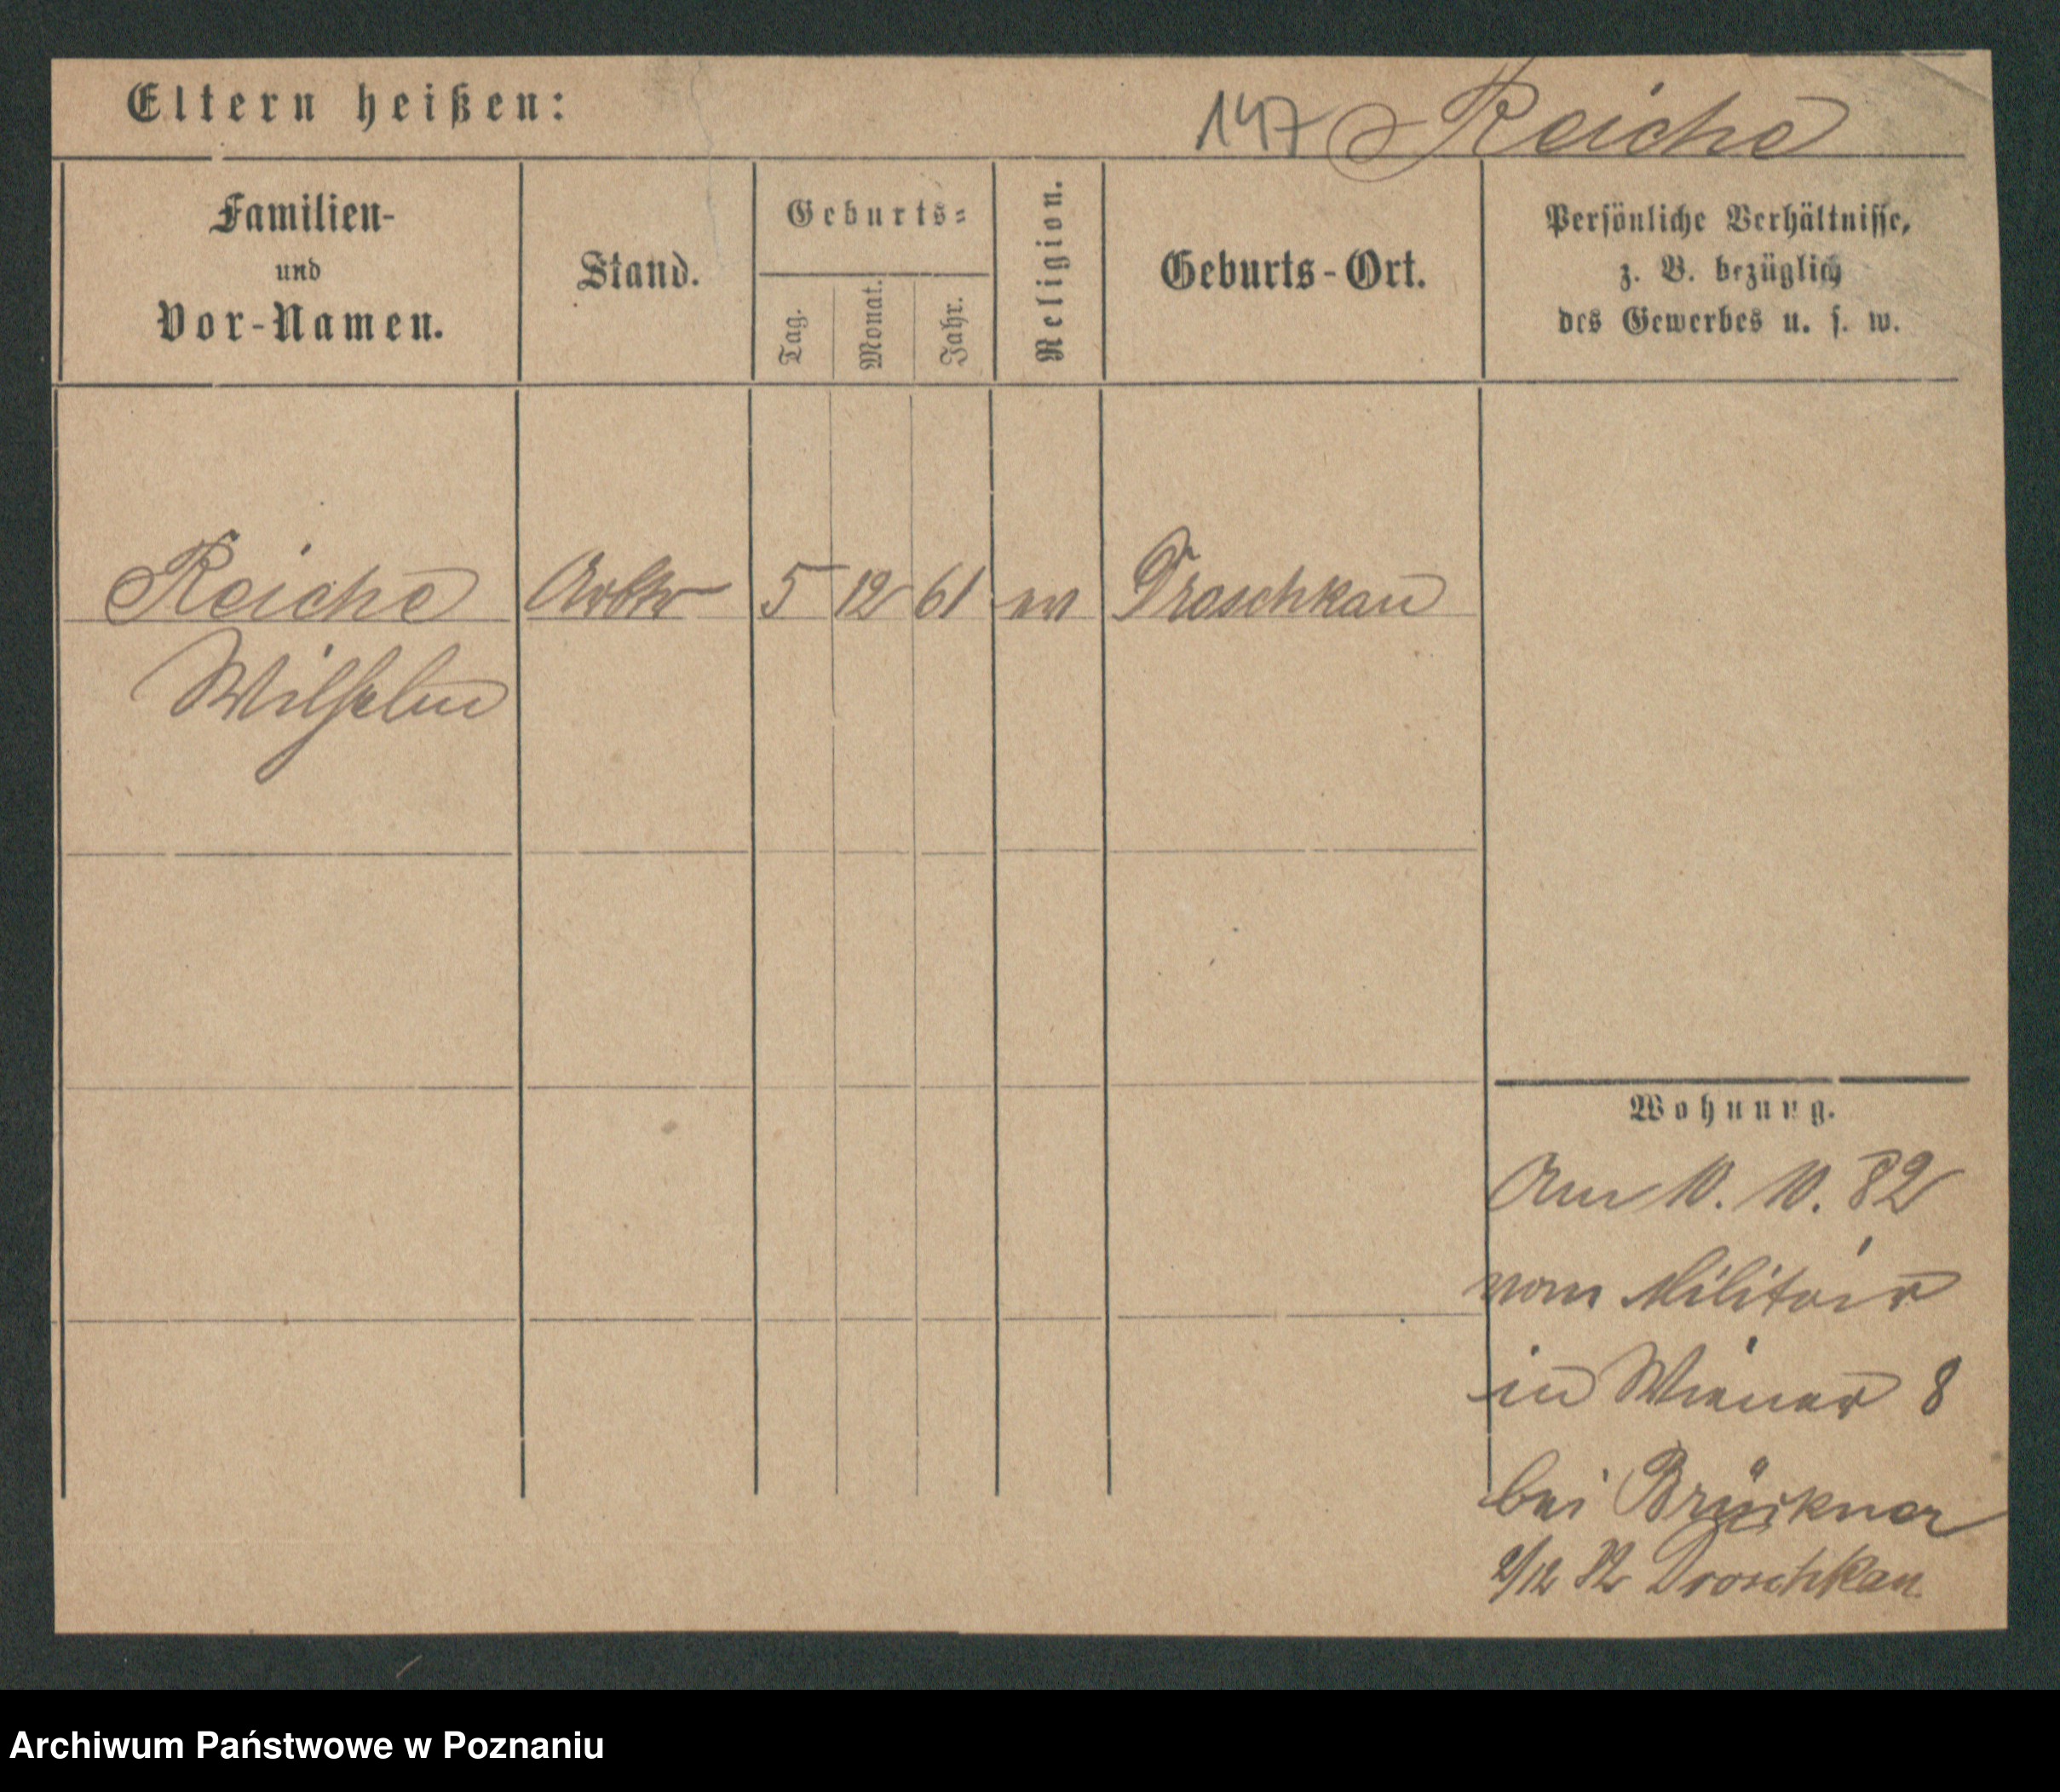 Eltern heißen:
147 Reiche
Familien-
und
Vor-Namen.
Stand.
Geburts-
Tag.
Monat.
Jahr.
Religion.
Geburts-Ort.
Persönliche Verhältnisse,
z. B. bezüglich
des Gewerbes u. s. w.
Reiche 5 12 61 Droschkau
Wilhelm
Wohnung.
Am 10. 10. 82
vom Militair
in Wiener 8
bei Brückner
2/12 82 Droschkau